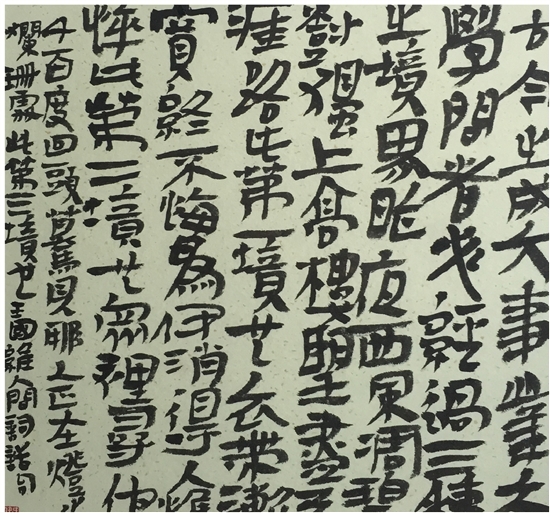 古今之成大事業大
學問者必經過三種
之境界昨夜西風凋碧
樹獨上高樓望盡天
涯路此第一境也衣帶漸
寬終不悔為伊消得人憔
悴此第二境也眾裡尋他
千百度回頭驀見那人正在燈火
爛珊處此第三境也王國維人間詞話句